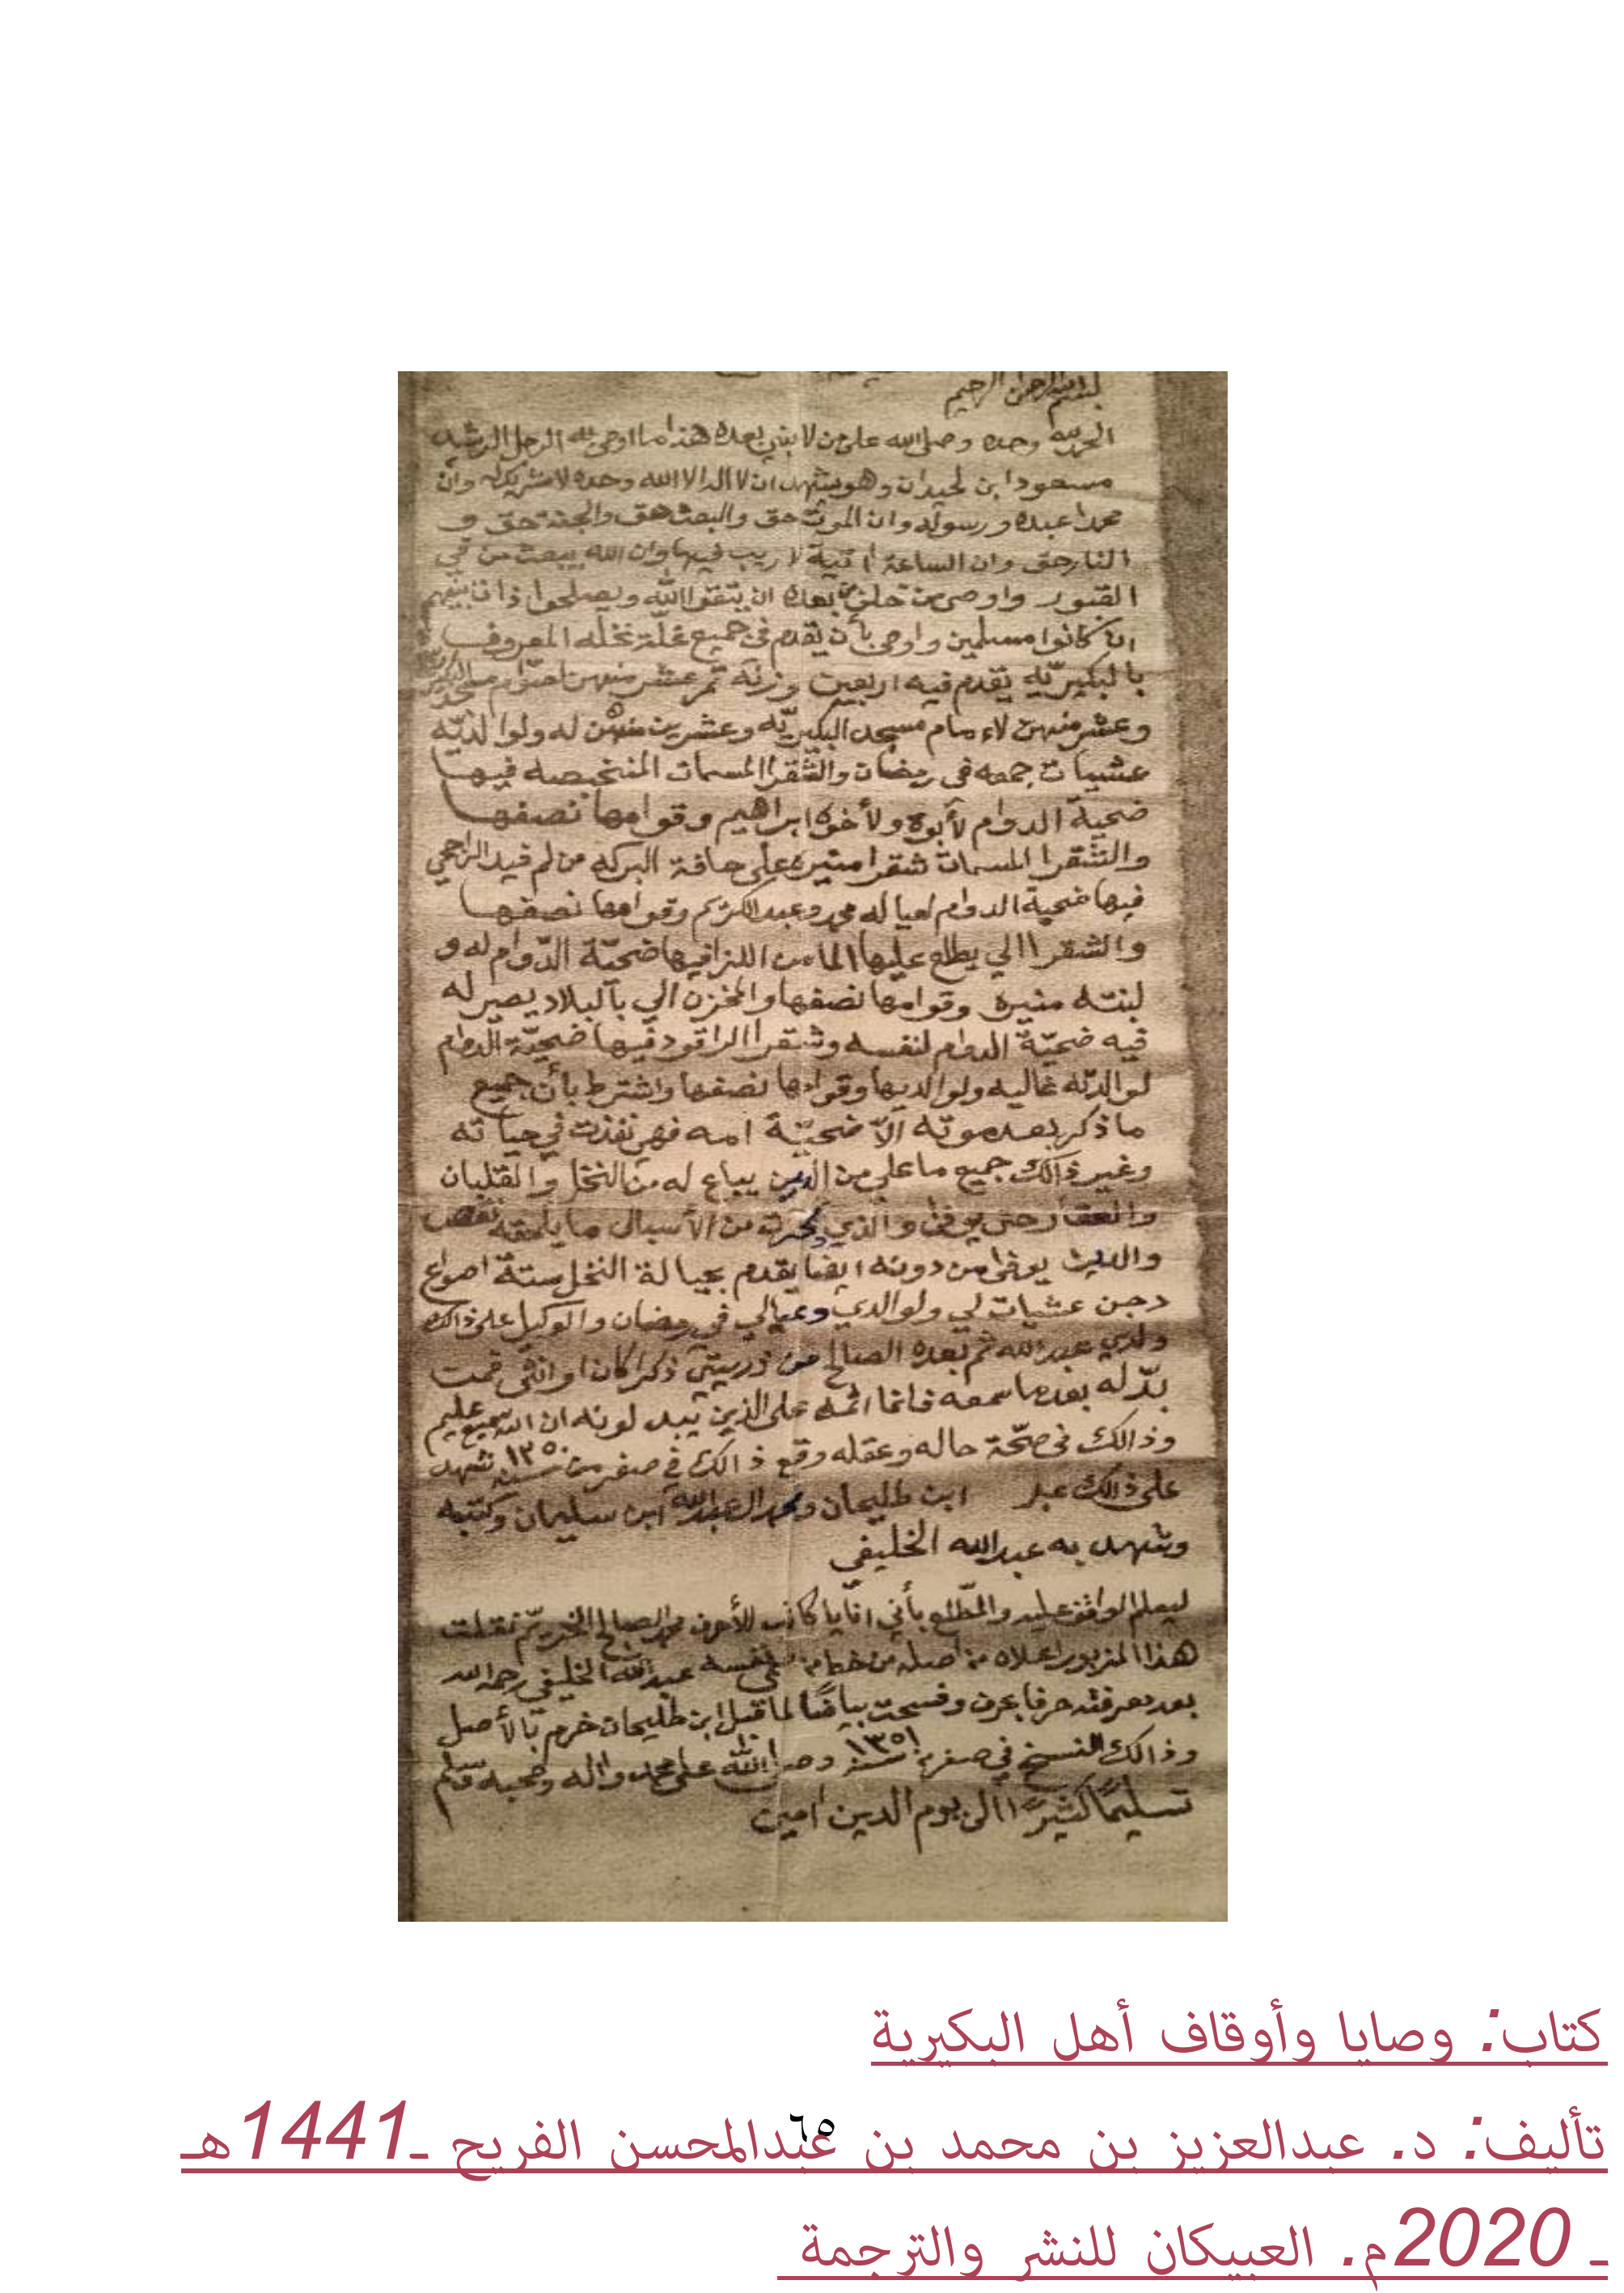 بسم الله الرحمن الرحيم
الحمد لله وحده وصلى الله على من لا نبي بعده هذا ما اوصى به الرجل الرشيد
مسعود ابن لحيدان وهو يشهد ان لا اله الا الله وحده لا شريك له وان
محمدا عبده ورسوله وان الموت حق والبعث حق والجنة حق و
النار حق وان الساعة اتية لا ريب فيها وان الله يبعث من في
القبور واوصى من خلف من بعده ان يتقوا الله ويصلحوا ذات بينهم
ان كانوا مسلمين واوصى بأن يقدم في جميع غلة نخله المعروف
بالبكيريّه يقدم فيه اربعين وزنة تمر عشر منهن لصوّام مسجد
وعشر منهن لاءمام مسجد البكيريّه وعشرين منهن له ولوالديّه
عشيات جمعه في رمضان والشقرا المسمات فيها
ضحية الدوام لأبوه ولأخوه ابراهيم وقوامها نصفها
والشقرا المسمات شقرا منيره على حافة البركه من
فيها ضحية الدوام لعياله محمد وعبدالكريم وقوامها نصفها
والشقرا الي يطلع عليها الما من اللزا فيها ضحيّة الدّوام له و
لبنته منيره وقوامها نصفها والمخزن الي بآلبلاد يصير له
فيه ضحيّة الدوام لنفسه وشقرا الراقود فيها ضحيّة الدوام
لوالدته غاليه ولوالديها وقوامها نصفها واشترط بأن جميع
ما ذكر بعد موته الاّ ضحيّة امه فهي نفذت في حياته
وغير ذالك جميع ما علي من الدين يباع له من النخل والقلبان
والعقار حتى يوفى والذي من الأسبال ما يلحقه نقص
والدين يوفى من دونه ايضا يقدم بجبالة النخل ستة اصواع
دجن عشيات لي ولوالدي وعيالي في رمضان والوكيل على ذالك
ولدي عبدالله ثم بعده الصالح من ذريتي ذكرا كان او انثى فمن
بدّله بعدما سمعه فانما اثمه على الذين يبدلونه ان الله سميع عليم
وذالك في صحّة حاله وعقله وقع ذالك في صفر من سنة ١٣٥٠ شهد
على ذالك عبد ابن طليحان ومحمد العبدالله ابن سليمان وكتبه
وشهد به عبدالله الخليفي
ليعلم الواقف عليه والمطّلع بأني انا يا كاتب الأحرف محمد الصالح نقلت
هذا المزبور اعلاه من اصله من خط من نفسه عبدالله الخليفي رحمه الله
بعد معرفته حرفا بحرف وفسحت بياضًا لما قبل ابن طليحان خرم بالأصل
وذالك النسخ في صفر سنة ١٣٥١ وصلى الله على محمد واله وصحبه وسلم
تسليمًا كثيرًا الى يوم الدين امين
كتاب: وصايا وأوقاف أهل البكيرية
تأليف: د. عبدالعزيز بن محمد بن عبدالمحسن الفريح ـ1441هـ
٦٥
ـ 2020م. العبيكان للنشر والترجمة